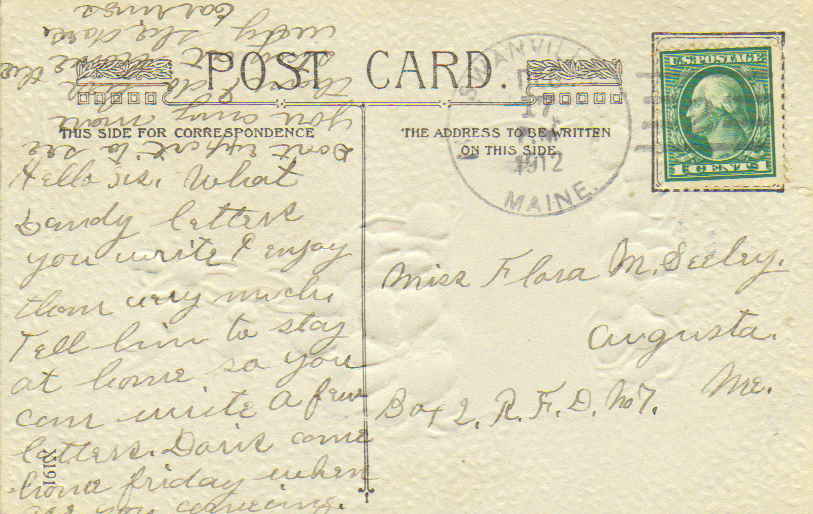 POST CARD.
THIS SIDE FOR CORRESPONDENCE
THE ADDRESS TO BE WRITTEN
ON THIS SIDE
SWANVILLE
17
1912
MAINE.
U.S. POSTAGE
1 CENT 1
Hello sis. What
dandy letters
you write I enjoy
them very much.
Tell him to stay
at home so you
can write a few
letters. Doris come
home friday when
are you comeing.
Don't expect to see
you any more
than I do
the
Miss Flora M. Seeley.
Augusta.
Me.
Box 2. R. F. D. No 7.
X191